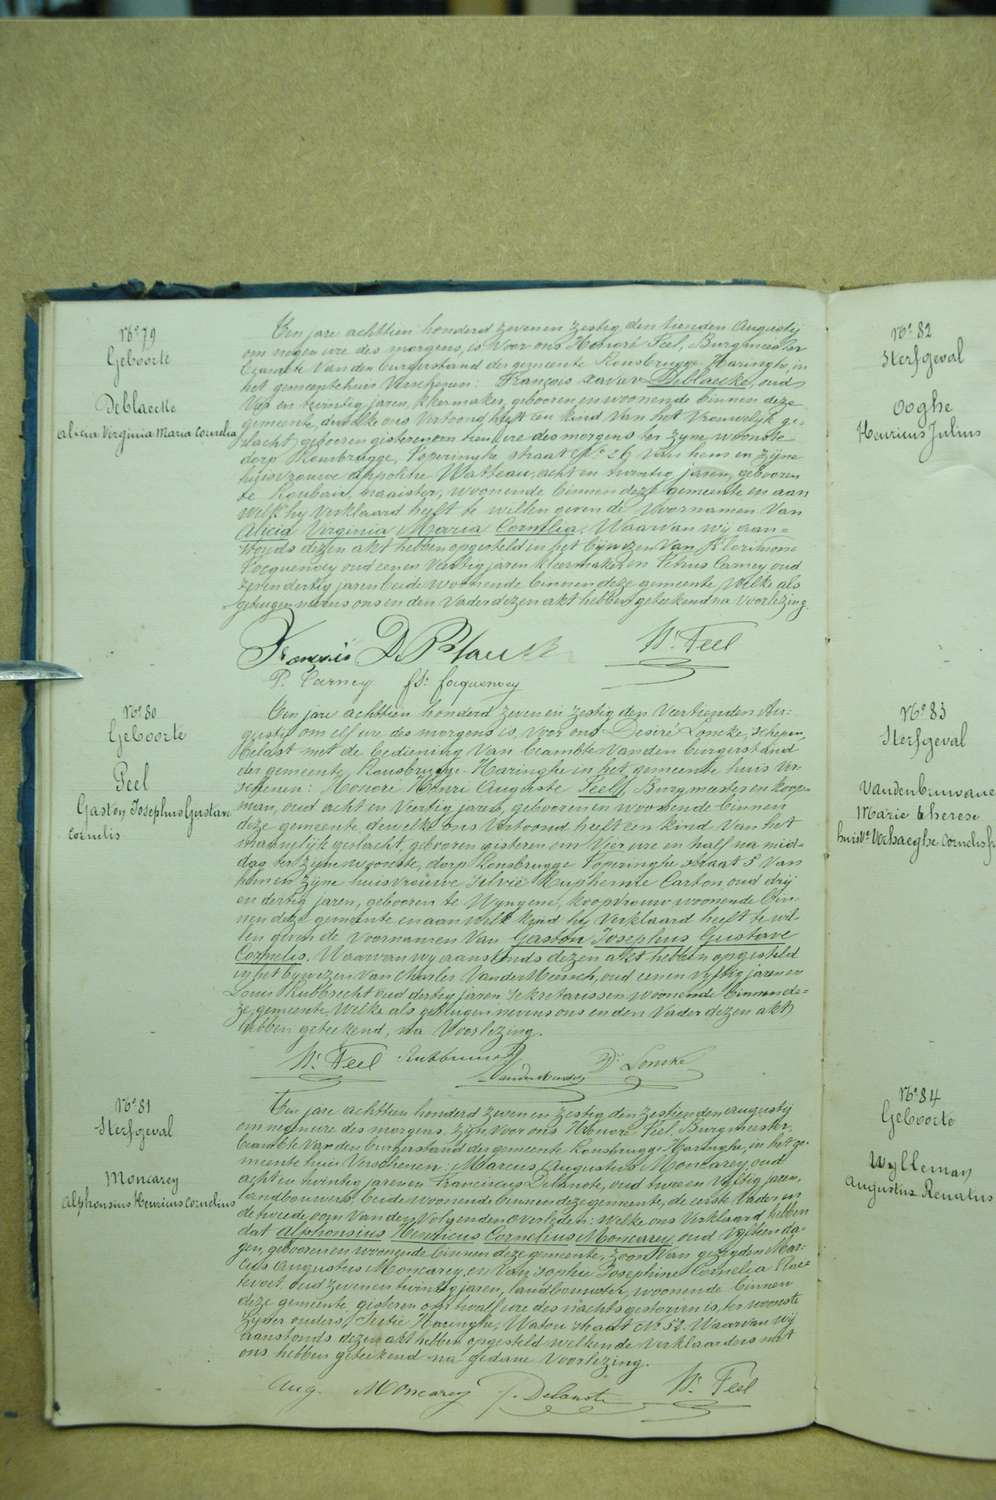 No 79
Geboorte
Deblaecke
Alicia Virginia Maria Cornelia
Ten jare achttien honderd zeven en zestig den tienden Augusty
om negen ure des morgens, is Voor ons Honoré Feel, Burgmeester
beambte Van den burgerstand der gemeente Rousbrugge-Haringhe, in
het gemeentehuis Verschenen: François xavier Deblaecke, oud
Vyf en twintig jaren, geboren en woonende binnen deze
gemeente, dewelke ons Vertoond heeft een kind Van het Vrouwelyk ge-
slacht, geboren gisteren om tien ure des morgens ter zyne woonste
dorp Rousbrugge, Poperinghe straat No 26 Van hem en zyne
huisvrouwe Watteau, acht en twintig jaren, geboren
te Roubaix, woonende binnen deze gemeente en aan
welk hy Verklaard heeft te willen geven de Voornamen Van
Alicia Virginia Maria Cornelia. Waarvan wy aan-
stonds dezen akt hebben opgesteld in het bywezen Van
Focquenoey oud een en Veertig jaren kleermaker en Petrus Carney oud
zeven en dertig jaren beide woonende binnen deze gemeente, welke als
getuigen nevens ons en den Vader dezen akt hebben geteekend na Voorlezing.
François DeBlaecke H. Feel
P. Carney fs. focquenoey
No 80
Geboorte
Feel
Gaston Josephus Gustave
Cornelis
Ten jare achttien honderd zeven en zestig den Veertienden Au-
gusty om elf ure des morgens is, Voor ons Desiré Loncke, schepen
belast met de bediening Van beambte Van den burgerstand
der gemeente Rousbrugge-Haringhe in het gemeente huis Ver-
schenen: Honoré Henri Auguste Feel, Burgmeester en koop-
man, oud acht en Veertig jaren, geboren en woonende binnen
deze gemeente, dewelke ons Vertoond heeft een kind Van het
mannelyk geslacht, geboren gisteren om Vier ure en half na mid-
dag ter zyne woonste, dorp Rousbrugge Poperinghe straat 5 Van
hem en zyne huisvrouwe Silvie Euphemie Carton, oud dry
en dertig jaren, geboren te Wyngene, koopvrouw woonende bin-
nen deze gemeente en aan welk kind hy Verklaard heeft te wil-
len geven de Voornamen Van Gaston Josephus Gustave
Cornelis. Waarvan wy aanstonds dezen akt hebben opgesteld
in het bywezen Van Charles Van der Meersch, oud een en Vyftig jaren en
Louis Rubbrecht oud dertig jaren sekretarissen woonende binnen de-
ze gemeente, Welke als getuigen nevens ons en den Vader dezen akt
hebben geteekend, na Voorlezing.
H. Feel Rubbrecht Ds. Loncke
No 81
Sterfgeval
Moncarey
Alphonsius Henricus Cornelius
Ten jare achttien honderd zeven en zestig den zestienden augusty
om negen ure des morgens zyn Voor ons Honoré Feel, Burgmeester,
beambte Van den burgerstand der gemeente Rousbrugge-Haringhe, in het ge-
meente huis Verschenen, Marcus Augustius Moncarey, oud
acht en twintig jaren en Franciscus Delanote, oud twee en Vyftig jaren,
landbouwers beide woonende binnen deze gemeente, de eerste Vader en
de tweede oom Van den Volgenden overleden: welke ons Verklaard hebben
dat Alphonsius Henricus Cornelius Moncarey, oud Vyftien da-
gen, geboren en woonende binnen deze gemeente, zoon Van gezegden Mar-
cus Augustius Moncarey en Van Sophie Josephine Cornelia
oud zeven en twintig jaren, landbouwster, woonende binnen
deze gemeente, gisteren om twaalf ure des nachts gestorven is, ter woonste
zyner ouders, Sectie Haringhe, Watou straat No 52. Waarvan wy
aanstonds dezen akt hebben opgesteld welken de Verklaarders met
ons hebben geteekend na gedane Voorlezing.
Aug. Moncarey F. Delanote H. Feel
No 82
Sterfgeval
Ooghe
Henricus Julius
No 83
Sterfgeval
Marie therese
No 84
Geboorte
Wylleman
Augustus Renatus